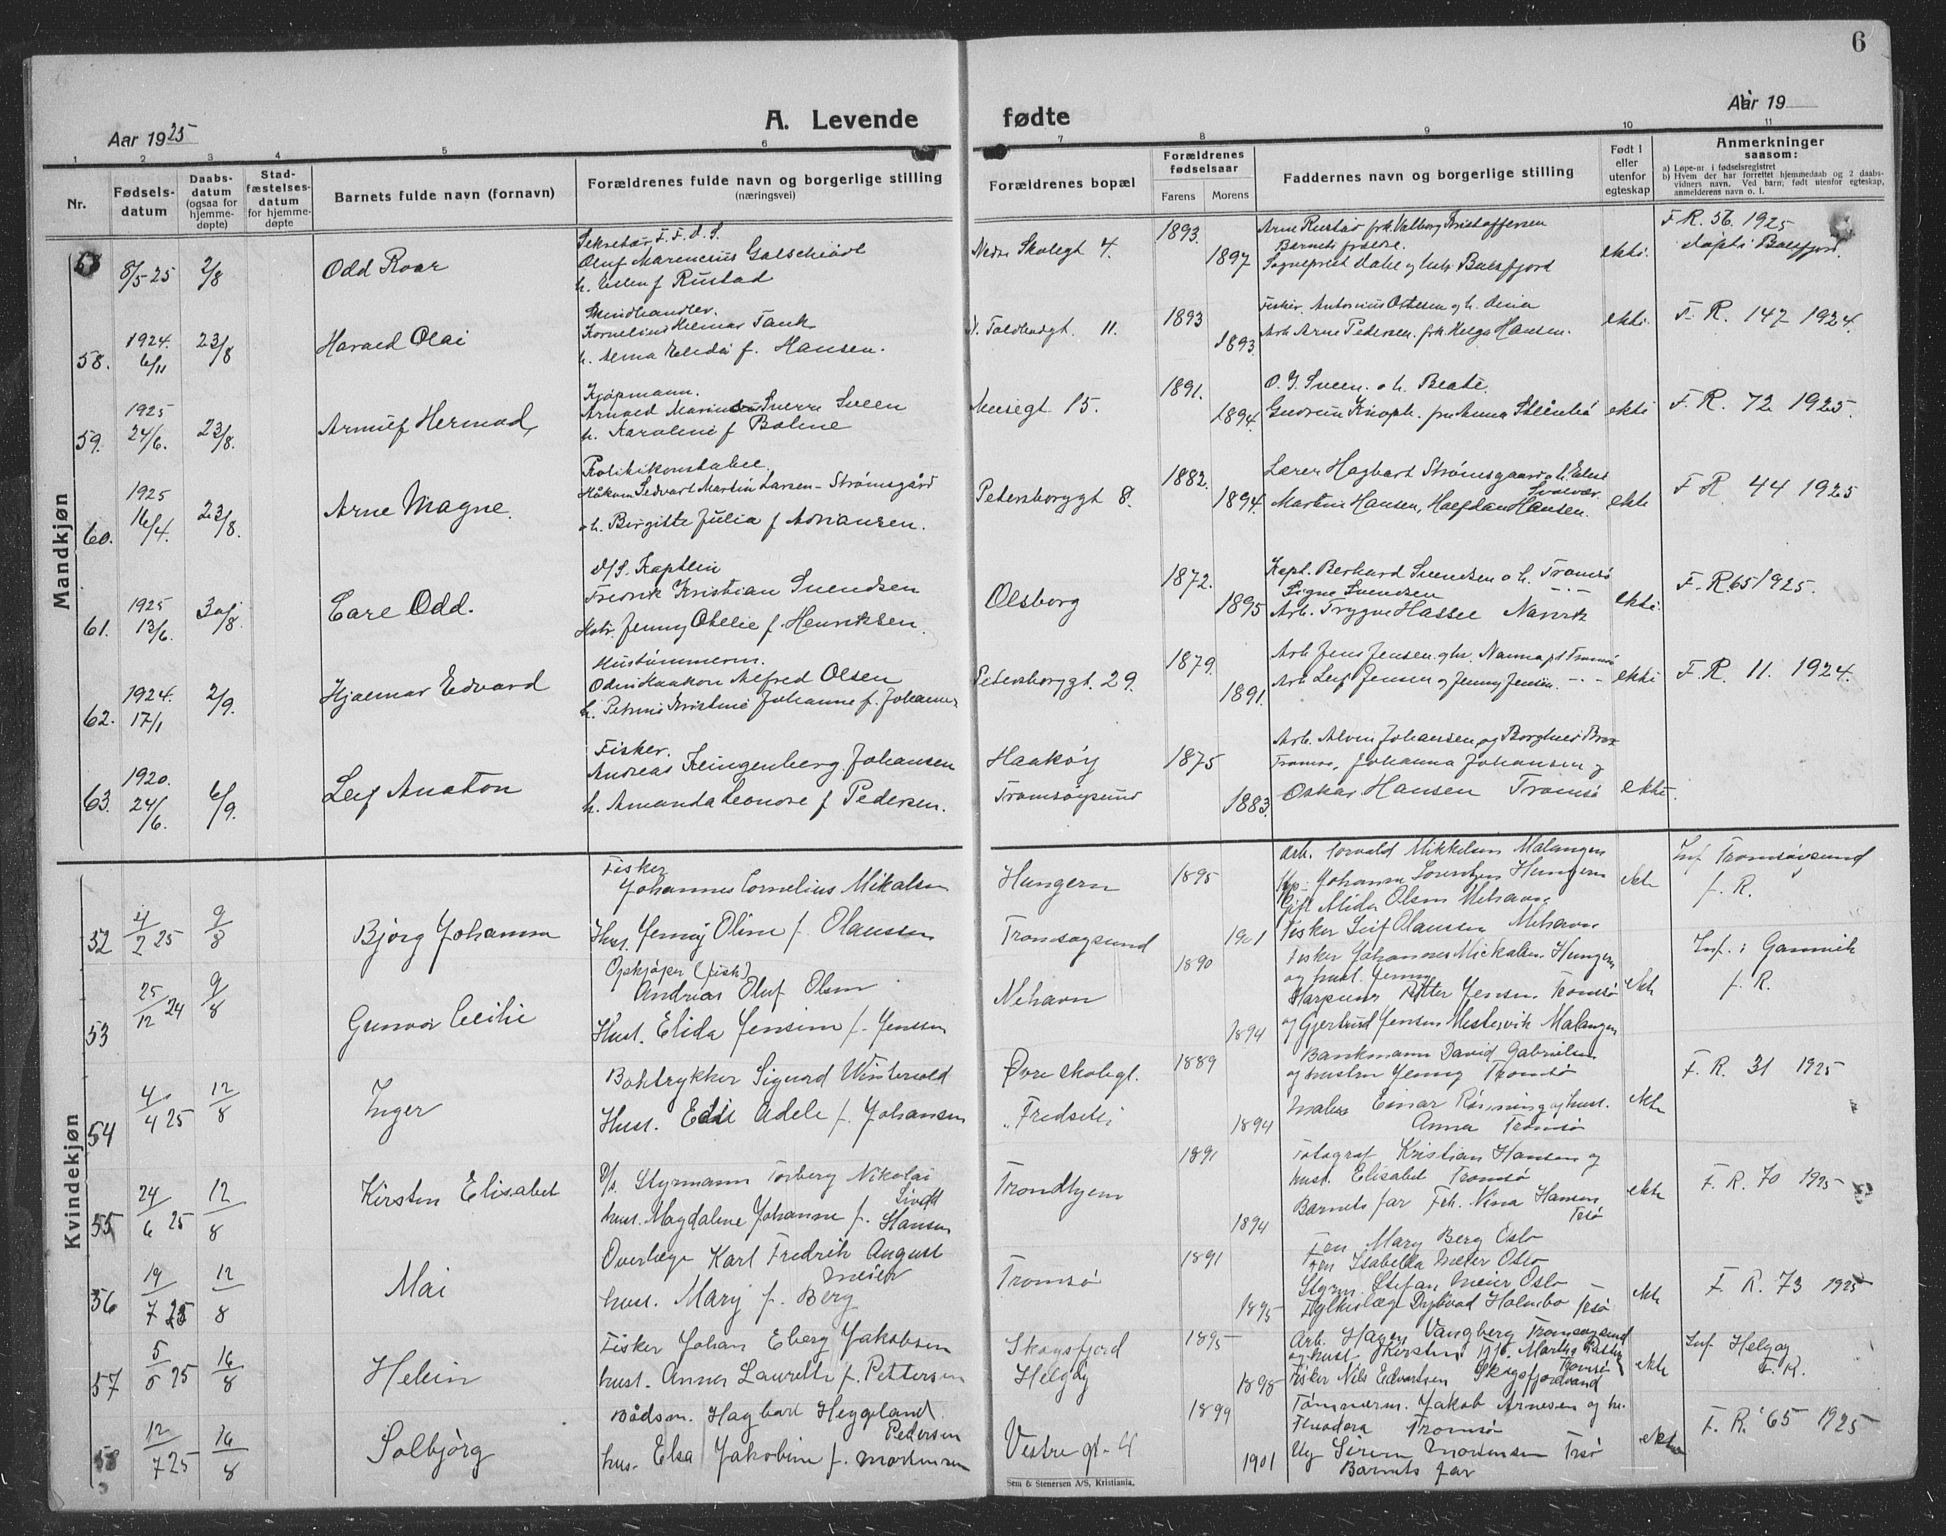 6
Aar 1925
A. Levende fødte
Aar 19
1 2 3 4 5 6 7 8 9 10 11
Nr.
Fødsels-
datum
Daabs-
datum
(ogsaa for
hjemme-
døpte)
Stad-
fæstelses-
datum
for hjemme-
døpte
Barnets fulde navn (fornavn)
Forældrenes fulde navn og borgerlige stilling
(næringsvei)
Forældrenes bopæl
Forældrenes
fødselsaar
Farens Morens
Faddernes navn og borgerlige stilling
Født i
eller
utenfor
egteskap
Anmerkninger
saasom:
a) Løpe-nr. i fødselsregistret
b) Hvem der har forrettet hjemmedaab og 2 daabs-
vidners navn. Ved barn, født utenfor egteskap,
anmelderens navn o. l.
Mandkjøn
8/5-25 2/8 Odd Roar
Sekretær F.F.d.S.
Oluf Marencius Galschiødt
h. Ellen f Rustad
Nedre Skolegt 4.
1893.
1897
Arne Rustad frk Valborg Kristoffersen
Barnets forældre.
Sogneprest Dahl og hustr Balsfjord
ekte.
F.R. 56. 1925
døpt i Balsfjord.
58. 1924. 6/11 23/8 Harald Olai
Skindhandler.
Kornelius Hilmar Tank
h. Alma Elida f. Hansen.
N. Toldbodgt. 11.
1893
1893.
Fisker Antonius Olsen og h. Dina
Arb. Arne Pedersen. frk Helga Hansen.
ekte.
F.R. 147 1924.
59. 1925 24/6. 23/8. Arnulf Hermod,
Kjøpmann.
Arnold Marinius Sverre Sveen
h. Karoline f Bolme
Nelsigt 15.
1891.
1894.
O. J. Sveen. o h. Beate.
Gudrun Knoph. fru Anna Steinbø
ekte
F.R. 72 1925.
60. 1925 16/4. 23/8. Arne Magne.
Politikonstabel.
Håkon Sedvart Martin Larsen-Strømsgård
o h. Birgitte Julia f Adriansen.
Petersborggt 8.
1882.
1894.
Lærer Hagbart Strømsgaard o h. Ellen
Martin Hansen, Halfdan Hansen.
ekte
F R 44 1925
61. 1925 13/6. 30/8. Eare Odd.
D/S. Kaptein
Fredrik Kristian Svendsen
Hstr. Jenny Otelie f. Henriksen.
Olsborg
1872.
1895
Kapt. Berhard Svendsen o h. Tromsø
Signe Svendsen - " -
Arb. Trygve Hassel Narvik
ekte.
F.R 65 1925.
62. 1924. 17/1 2/9. Hjalmar Edvard
Hustømmerm.
Odin Haakon Alfred Olsen
h. Petrine Kristine Johanne f. Johannes
Petersborggt. 29.
1879.
1891.
Arb Jens Jensen og hr. Nanna pt Tromsø
Arb Leif Jensen og Jenny Jensen. - " -
ekte
F.R. 11. 1924.
63. 1920. 24/6. 6/9. Leif Anaton
Fisker.
Andreas Klingenberg Johansen
h. Amanda Leonore f Pedersen.
Haakøy
Tromsøysund
1875
1883.
Arb. Alvin Johansen og Borghild
Tromsø, Johanna Johansen og
Oskar Hansen Tromsø
ekte.
Kvindekjøn
52 4/2 25 9/8 Bjørg Johanna
Fisker
Johannes Cornelius Mikalsen
Hust. Jenny Oline f. Olaussen
Hungern
Tromsøysund
1895
1901
Arb. Torvald Mikkelsen Malangen
Johanna Lorentzen Hungern
Gift Alida Olsen Mehavn.
Fisker Leif Olaussen Mehavn
ekte
Inf. Tromsøysund
f. R.
53 25/12 24 9/8 Gunvor Cecilie
Opkjøper (fisk)
Andreas Oluf Olsen
Hust. Elida Jensine f. Jenssen
Mehavn
1890
1894
Fisker Johannes Mickalsen Hungern
og hust. Jenny
Harpuner Petter Jensen Tromsø
og Gjertrud Jensen Mestervik Malangen
ekte
Inf.: Gamvik
f. R.
54 4/4 25 12/8 Inger
Boktrykker Sigurd Wintervold
Hust. Edel Adele f. Johansen
Øvre skolegt.
"Fredseti"
1889
1894
Bankmann David Gabrielsen
og hustru Jenny Tromsø
Maler Einar Rønning og hust.
Anna Tromsø
ekte
F. R. 31 1925
55 24/6 25 12/8 Kirsten Elisabet
D/s. Styrmann Torberg Nikolai
hust. Magdalene Johanne f. Hansen
Trondhjem
1891
1894
Fotograf Kristian Hansen og
hust. Elisabet Tromsø
Barnets far Frk. Nina Hansen
Tr.sø
ekte
F. R. 70 1925
56 19/7 25 12/8 Mai
Overlæge Karl Fredrik August
Meier
hust. Mary f. Berg
Tromsø
1891
1895
Fru Mary Berg Oslo
Frn Isabella Meier Oslo
Styrm. Stefan Meier Oslo
Fylkeslæge Dybvad Holmbo Trsø
ekte
F. R. 73 1925
57 5/5 25 16/8 Helein
Fisker Johan Eberg Jakobsen
hust. Anna Lauretti f. Pettersen
Skogsfjord
Helgøy
1895
1898
Arb. Hagen Vangberg Tromsøysund
og hust Kirsten
Tromsø
Fisker Nils Edvartsen Skogsfjordvand
ekte
Inf Helgøy
F. R.
58 12/7 25 16/8 Solbjørg
Bådsm. Hagbart Heggeland
Pedersen
hus. Elsa Jakobine f. Mortensen
Vestre gt-4
1899
1901
Tømmerm. Jakob Arnesen og hu.
Theodora Tromsø
Ug Søren Mortensen Trsø
Barnets far
ekte
F. R. 65 1925
Sem & Stenersen A/S, Kristiania.